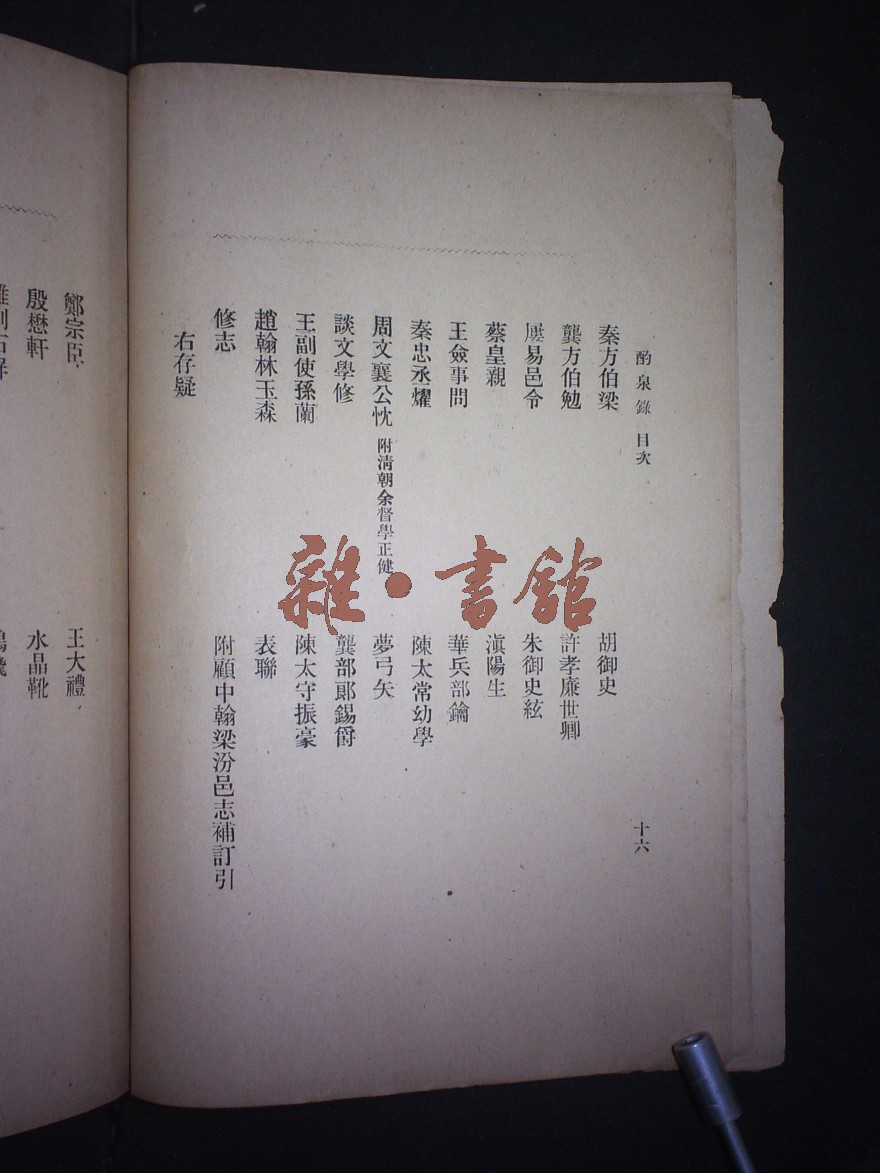 酌泉錄 目次 十六
秦方伯梁 胡御史
龔方伯勉 許孝廉世卿
屢易邑令 朱御史絃
蔡皇親 滇陽生
王僉事問 華兵部鑰
秦忠丞燿 陳太常幼學
周文襄公忱 附清朝余督學正健 夢弓矢
談文學修 龔部郎錫爵
王副使孫蘭 陳太守振豪
趙翰林玉森 表聯
修志 附顧中翰梁汾邑志補訂引
右存疑
鄭宗臣 王大禮
殷懋軒 水晶靴
雜·書館